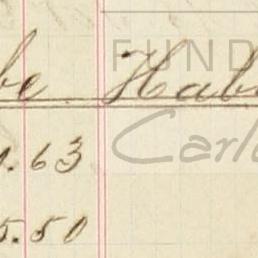 FUND
be Hab
Carl
.63
5.50